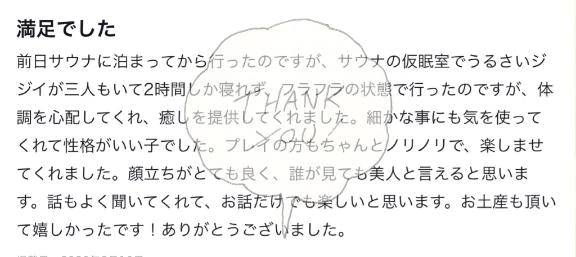 満足でした
前日サウナに泊まってから行ったのですが、サウナの仮眠室でうるさいジ
ジイが三人もいて2時間しか寝れず、フラフラの状態で行ったのですが、体
調を心配してくれ、癒しを提供してくれました。細かな事にも気を使って
くれて性格がいい子でした。プレイの方もちゃんとノリノリで、楽しませ
てくれました。顔立ちがとても良く、誰が見ても美人と言えると思いま
す。話もよく聞いてくれて、お話だけでも楽しいと思います。お土産も頂い
て嬉しかったです！ありがとうございました。
THANK
YOU!